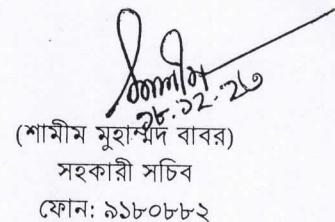 ১৮.১২.২৩
(শামীম মুহাম্মদ বাবর)
সহকারী সচিব
ফোন: ৯১৮০৮৮২